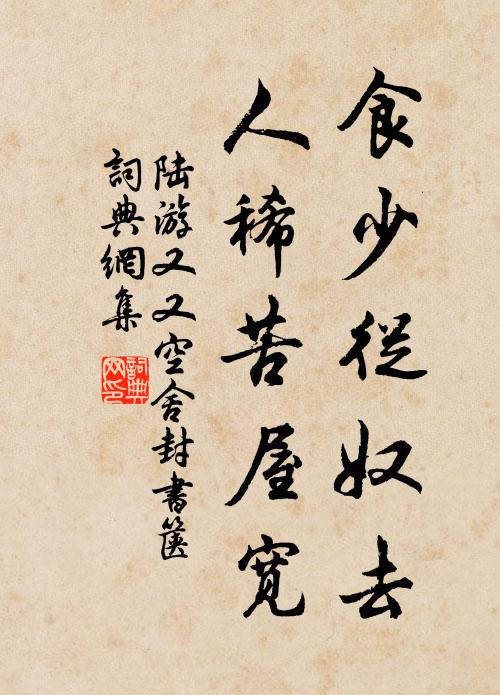 食少從奴去
人稀苦屋寬
陆游又又空舍封書篋
詞典網集
詞典
网印